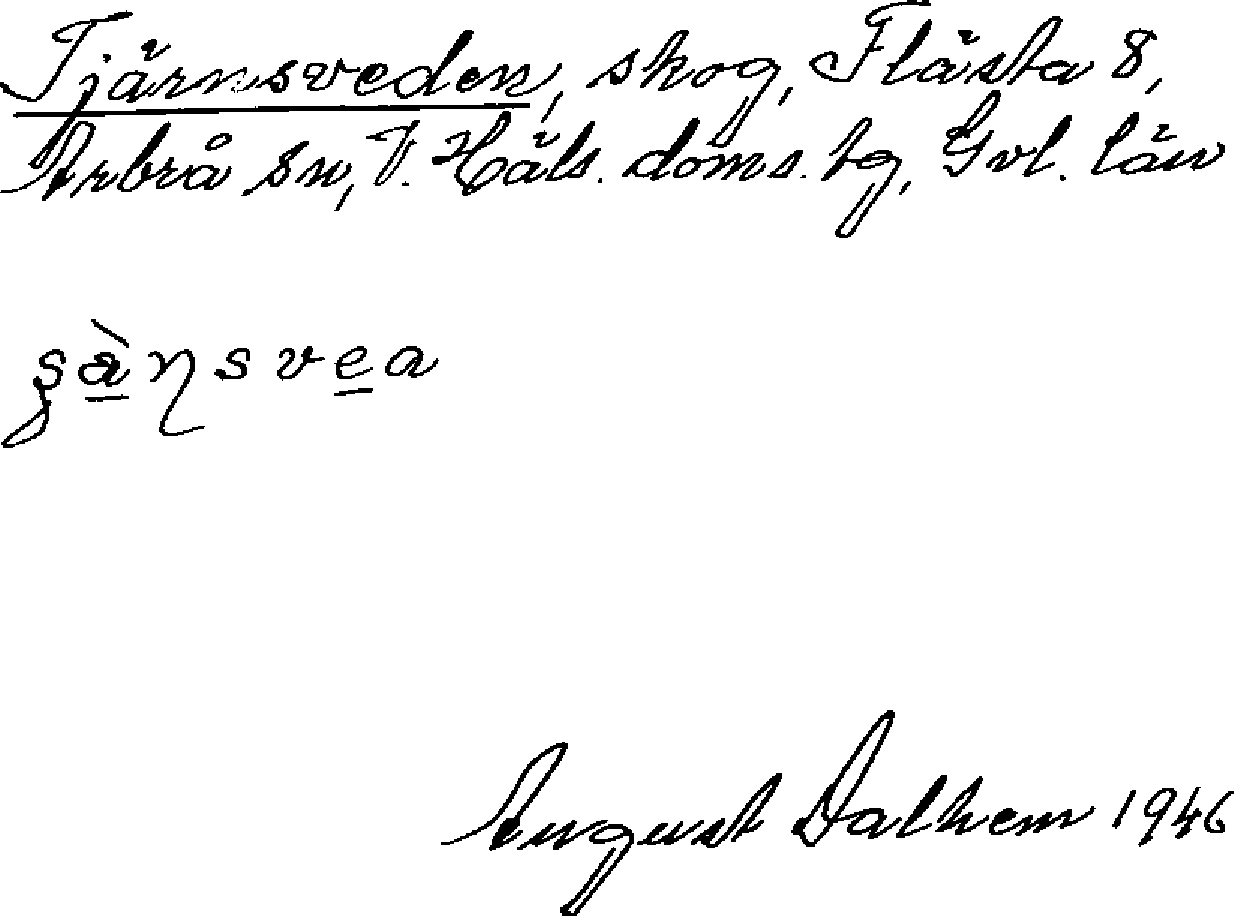 Tjärnsveden, skog, Flästa 8,
Arbrå sn, V. Häls. doms. tg, Gvl. län
ʂàɳsvea
August Dalhem 1946